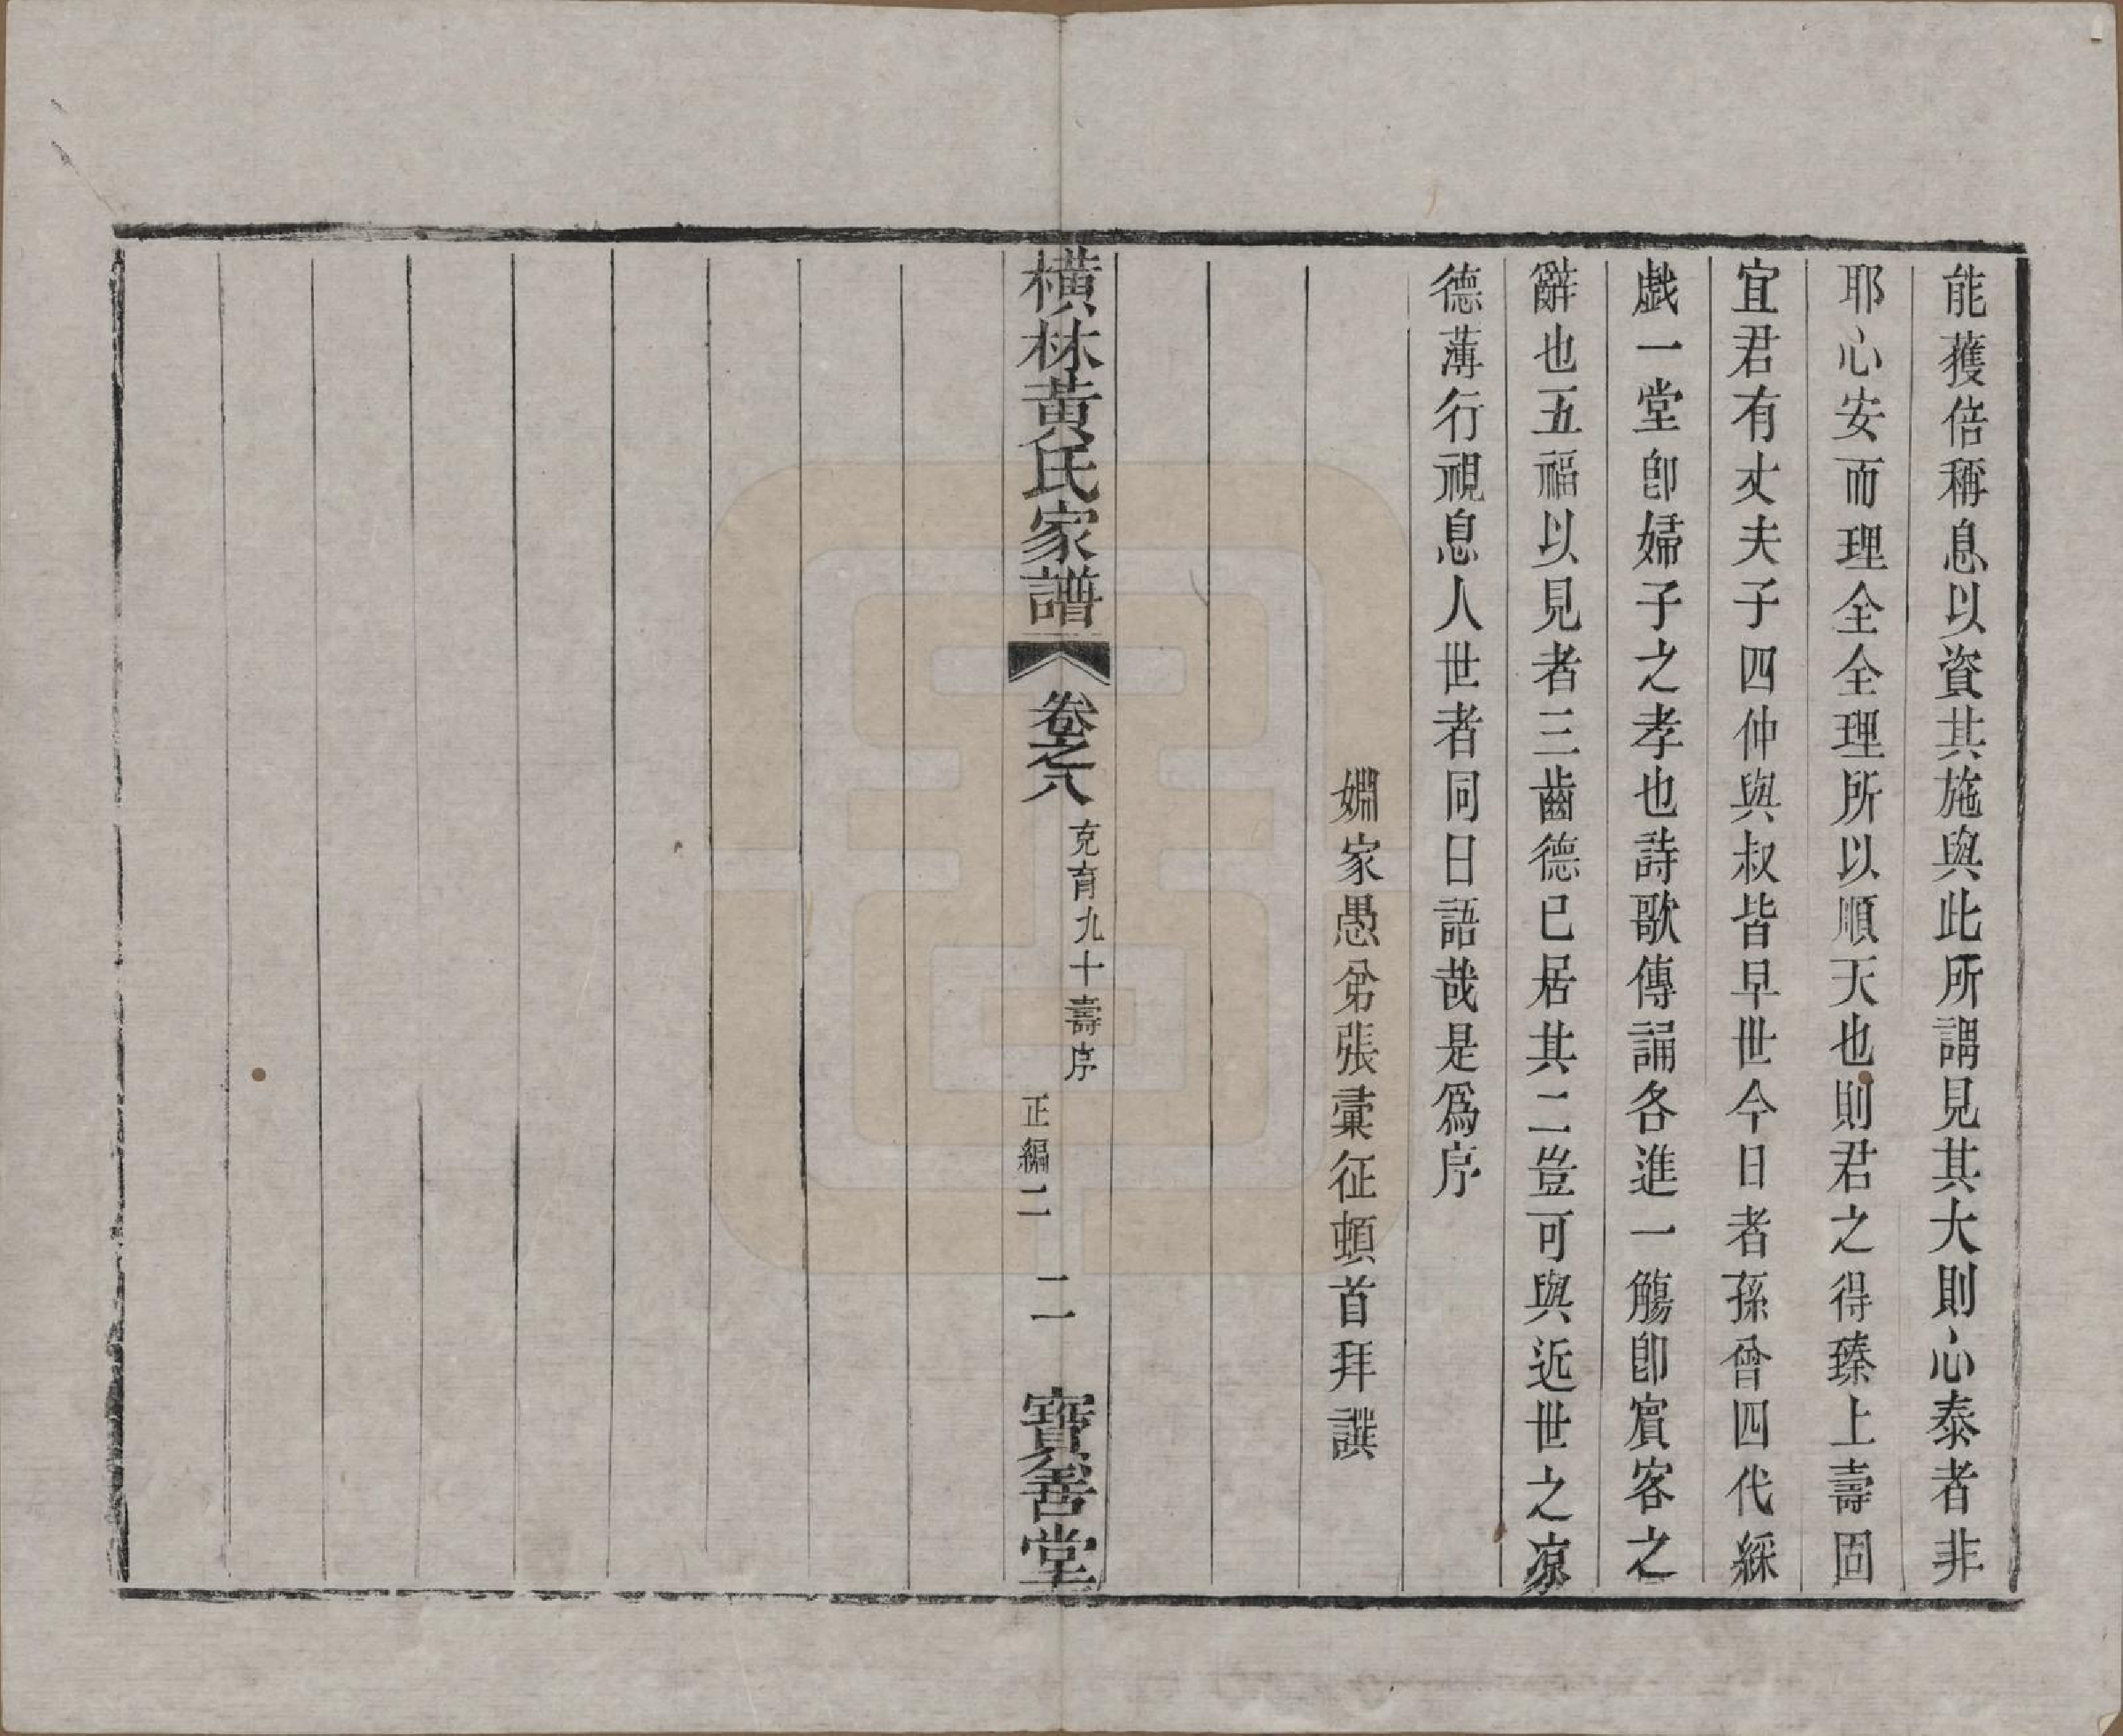 能獲倍稱息以資其施與此所謂見其大則心泰者非
耶心安而理全全理所以順天也則君之得臻上壽固
宜君有丈夫子四仲與叔皆早世今日者孫曾四代綵
戯一堂卽婦子之孝也詩歌傳誦各進一觴卽賓客之
辭也五福以見者三齒德已居其二豈可與近世之凉
德薄行視息人世者同日語哉是爲序
姻家愚弟張彙征頓首拜譔
橫林黃氏家譜
卷之八
克育九十壽序
正編二
二
寶善堂